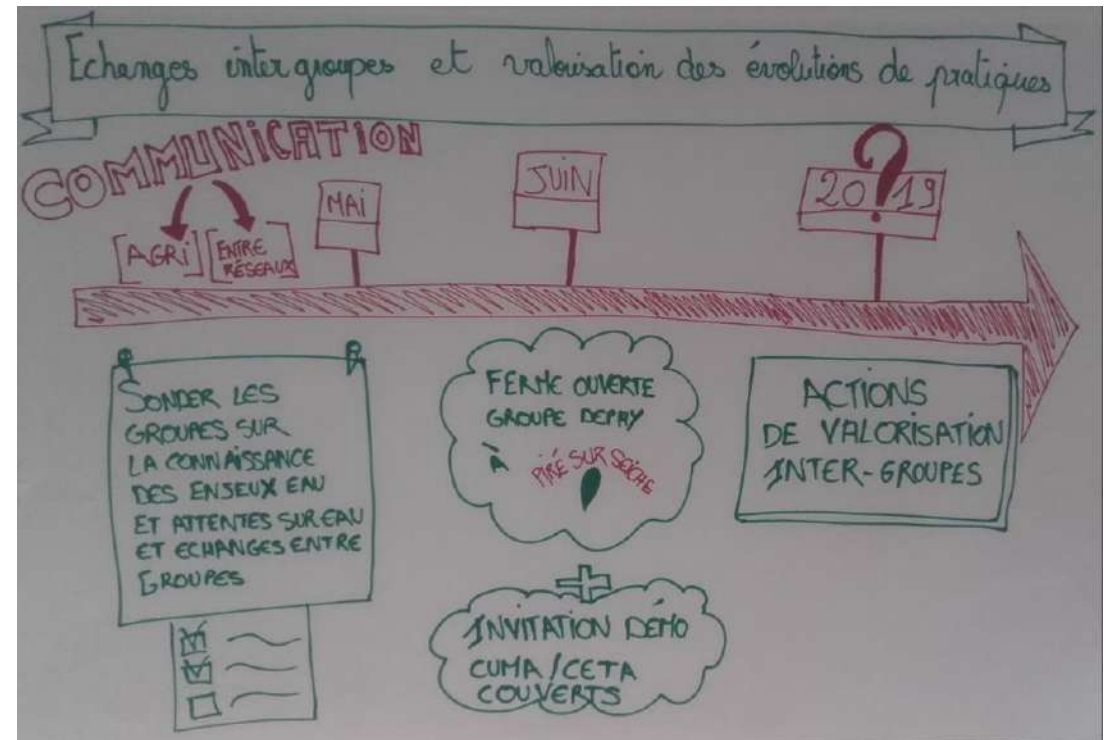 Echanges intergroupes et valorisation des évolutions de pratiques
COMMUNICATION
[AGRI]
[ENTRE
RÉSEAUX]
MAI
JUIN
2019
?
SONDER LES
GROUPES SUR
LA CONNAISSANCE
DES ENJEUX EAU
ET ATTENTES SUR EAU
ET ECHANGES ENTRE
GROUPES
FERME OUVERTE
GROUPE DEPHY
À
PIRÉ SUR SEICHE
+
INVITATION DÉMO
CUMA/CETA
COUVERTS
ACTIONS
DE VALORISATION
INTER-GROUPES